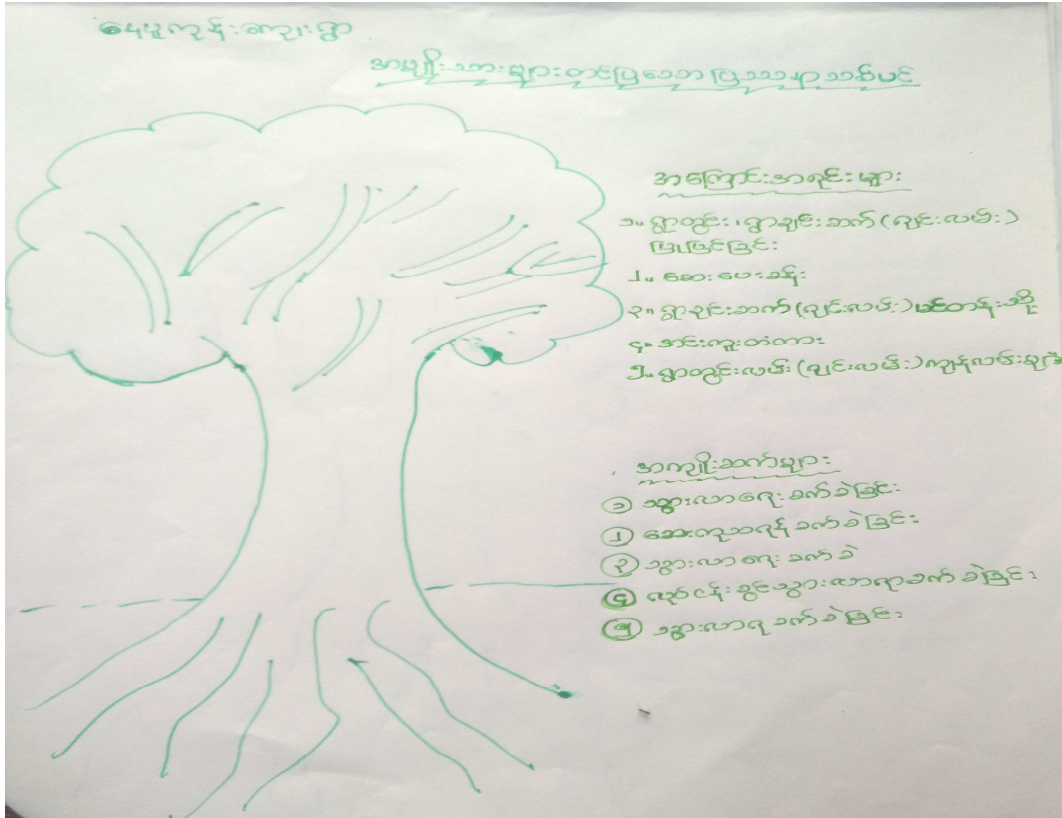 နေပူကုန်းကျေးရွာ
အမျိုးသားများတင်ပြသောပြဿနာသစ်ပင်
အကြောင်းအရင်းများ
၁။ ရွာတွင်း၊ ရွာချင်းဆက် (ချင်းလမ်း)
ပြုပြင်ခြင်း
၂။ ဆေးပေးခန်း
၃။ ရွာချင်းဆက် (ချင်းလမ်း)
၄။ အင်းကူးတံတား
၅။ ရွာတွင်းလမ်း (ချင်းလမ်း) ကျန်လမ်းများ
အကျိုးဆက်များ
၁ သွားလာရေးခက်ခဲခြင်း
၂ ဆေးကုသရန် ခက်ခဲခြင်း
၃ သွားလာရေးခက်ခဲ
၄ လုပ်ငန်းခွင်သွားလာရာခက်ခဲခြင်း
၅ သွားလာရခက်ခဲခြင်း